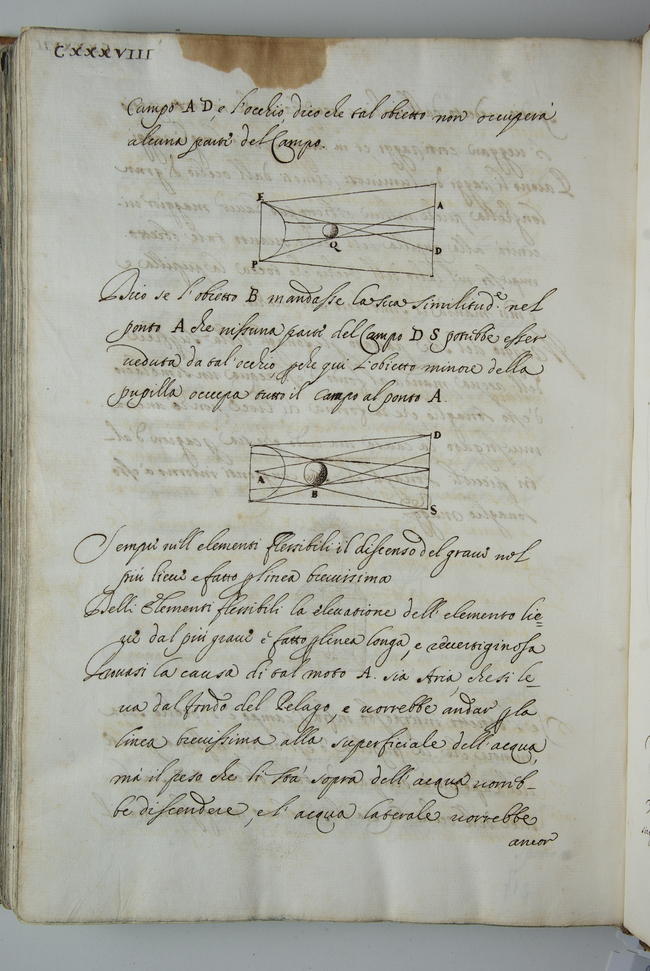 CXXXVIII
Campo A D, e l'occhio, dico che tal obietto non occuperà
alcuna parte del Campo.
E
A
Q
P
D
Dico se l'obietto B mandasse la sua similitud.e nel
ponto A che nissuna parte del Campo D S potrebbe esser
veduta da tal'occhio p che qui l'obietto minore della
pupilla occupa tutto il Campo al ponto A.
D
A
B
S
Sempre nell'elementi flessibili il discenso del grave nel
più lieve e fatto p linea brevissima
Delli Elementi flessibili la elevatione dell'elemento lie=
ve dal più grave è fatto p linea longa, e revertiginosa
Provasi la causa di tal moto A. sia Aria, che si le=
va dal fondo del Pelago, e vorrebbe andar p la
linea brevissima alla superficiale dell'acqua,
mà il peso che li stà sopra dell'acqua vorreb=
be discendere, e l'acqua laterale vorrebbe
ancor